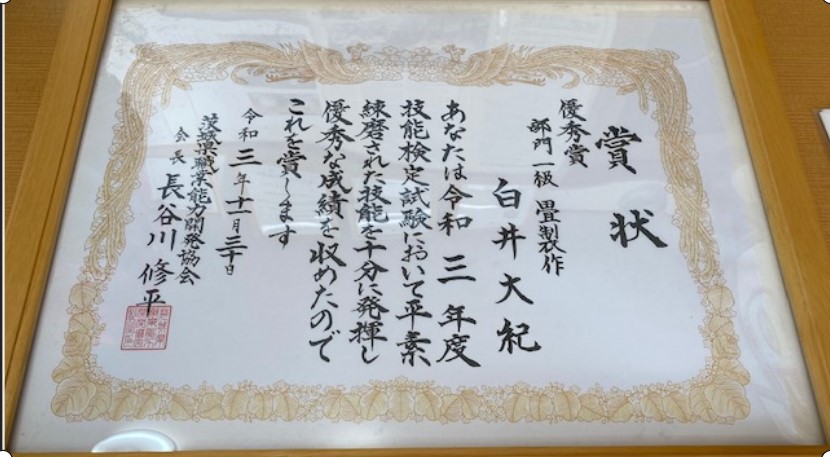 賞状
優秀賞
部門 一級 畳製作
白井大紀
あなたは令和三年度
技能検定試験において平素
練磨された技能を十分に発揮し
優秀な成績を収めたので
これを賞します
令和三年十一月三十日
茨城県職業能力開発協会
会長 長谷川修平